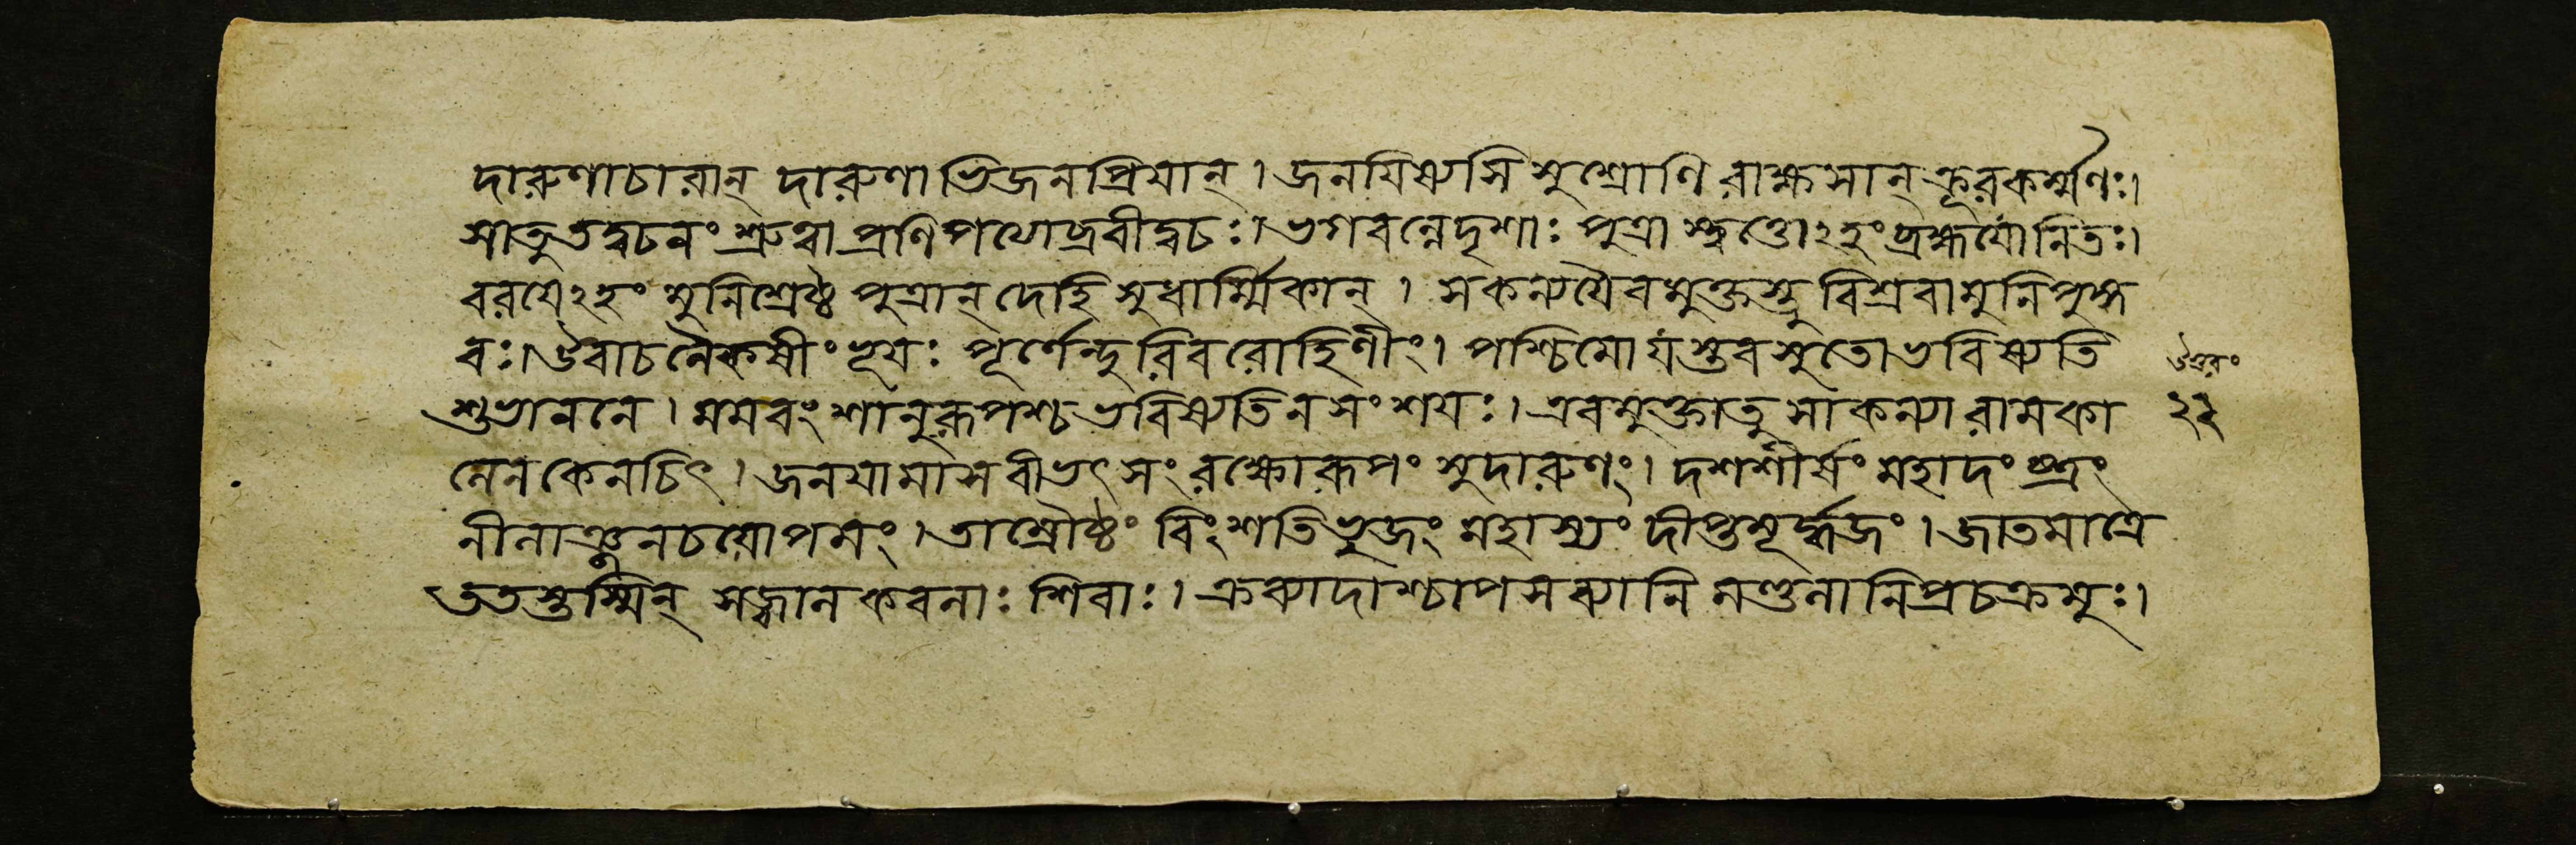 দারুণাচারান্ দারুণাভিজনপ্রিয়ান্ । জনযিষ্যসি সুশ্রোণি রাক্ষসান্ ক্রূরকর্ম্মণঃ।
সাতুতদ্বচনং শ্রুত্বা প্রণিপত্যোব্রবীদ্বচঃ। ভগবন্নেদৃশাঃ পুত্রাস্ত্বত্তোঽহং ব্রহ্মযোনিতঃ।
বরয়েঽহং মুনিশ্রেষ্ঠ পুত্রান্ দেহি সুধার্ম্মিকান্ । সকন্যয়ৈবমুক্তস্তু বিশ্রবামুনিপুঙ্গ
বঃ। উবাচনৈকষীং ভূয়ঃ পূর্ণেন্দুরিবরোহিণীং। পশ্চিমোযস্তবসুতোভবিষ্যতি
শুভাননে । মমবংশানুরূপশ্চভবিষ্যতিনসংশয়ঃ। এবমুক্তাতুসাকন্যা রামকা
লেনকেনচিৎ । জনয়ামাসবীভৎসংরক্ষোরূপং সুদারুণং। দশশীর্ষং মহাদংষ্ট্রং
নীলাঞ্জনচয়োপমং। তাম্রৌষ্ঠং বিংশতিভুজং মহাস্যং দীপ্তমূর্দ্ধজং । জাতমাত্রে
ততস্তস্মিন্ সজ্বালকবলাঃ শিবাঃ। ক্রব্যাদাশ্চাপসব্যানি মণ্ডলানিপ্রচক্রমুঃ।
উত্তরং
২২